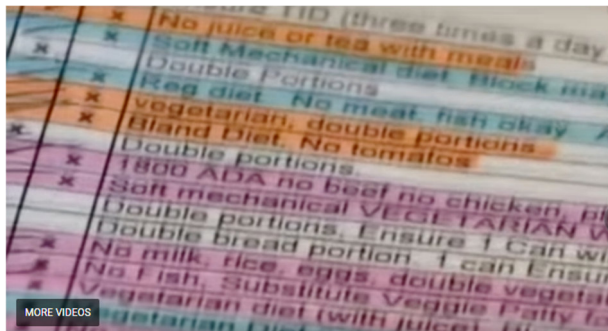 Ensure TID (three times a day
No juice or tea with meals
Soft Mechanical diet. Block
Double Portions
Reg diet. No meat, fish okay.
vegetarian, double portions
Bland Diet. No tomatos
Double portions.
1800 ADA no beef no chicken,
Soft mechanical VEGETARIAN
Double portions, Ensure 1 Can
Double bread portion, 1 can Ensure
No milk, rice, eggs, double
No Fish, Substitute Veggie Patty
Vegetarian diet (with juice)
Vegetarian
MORE VIDEOS